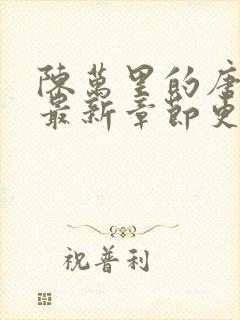 陳萬里的唐
最新章節更
祝普利